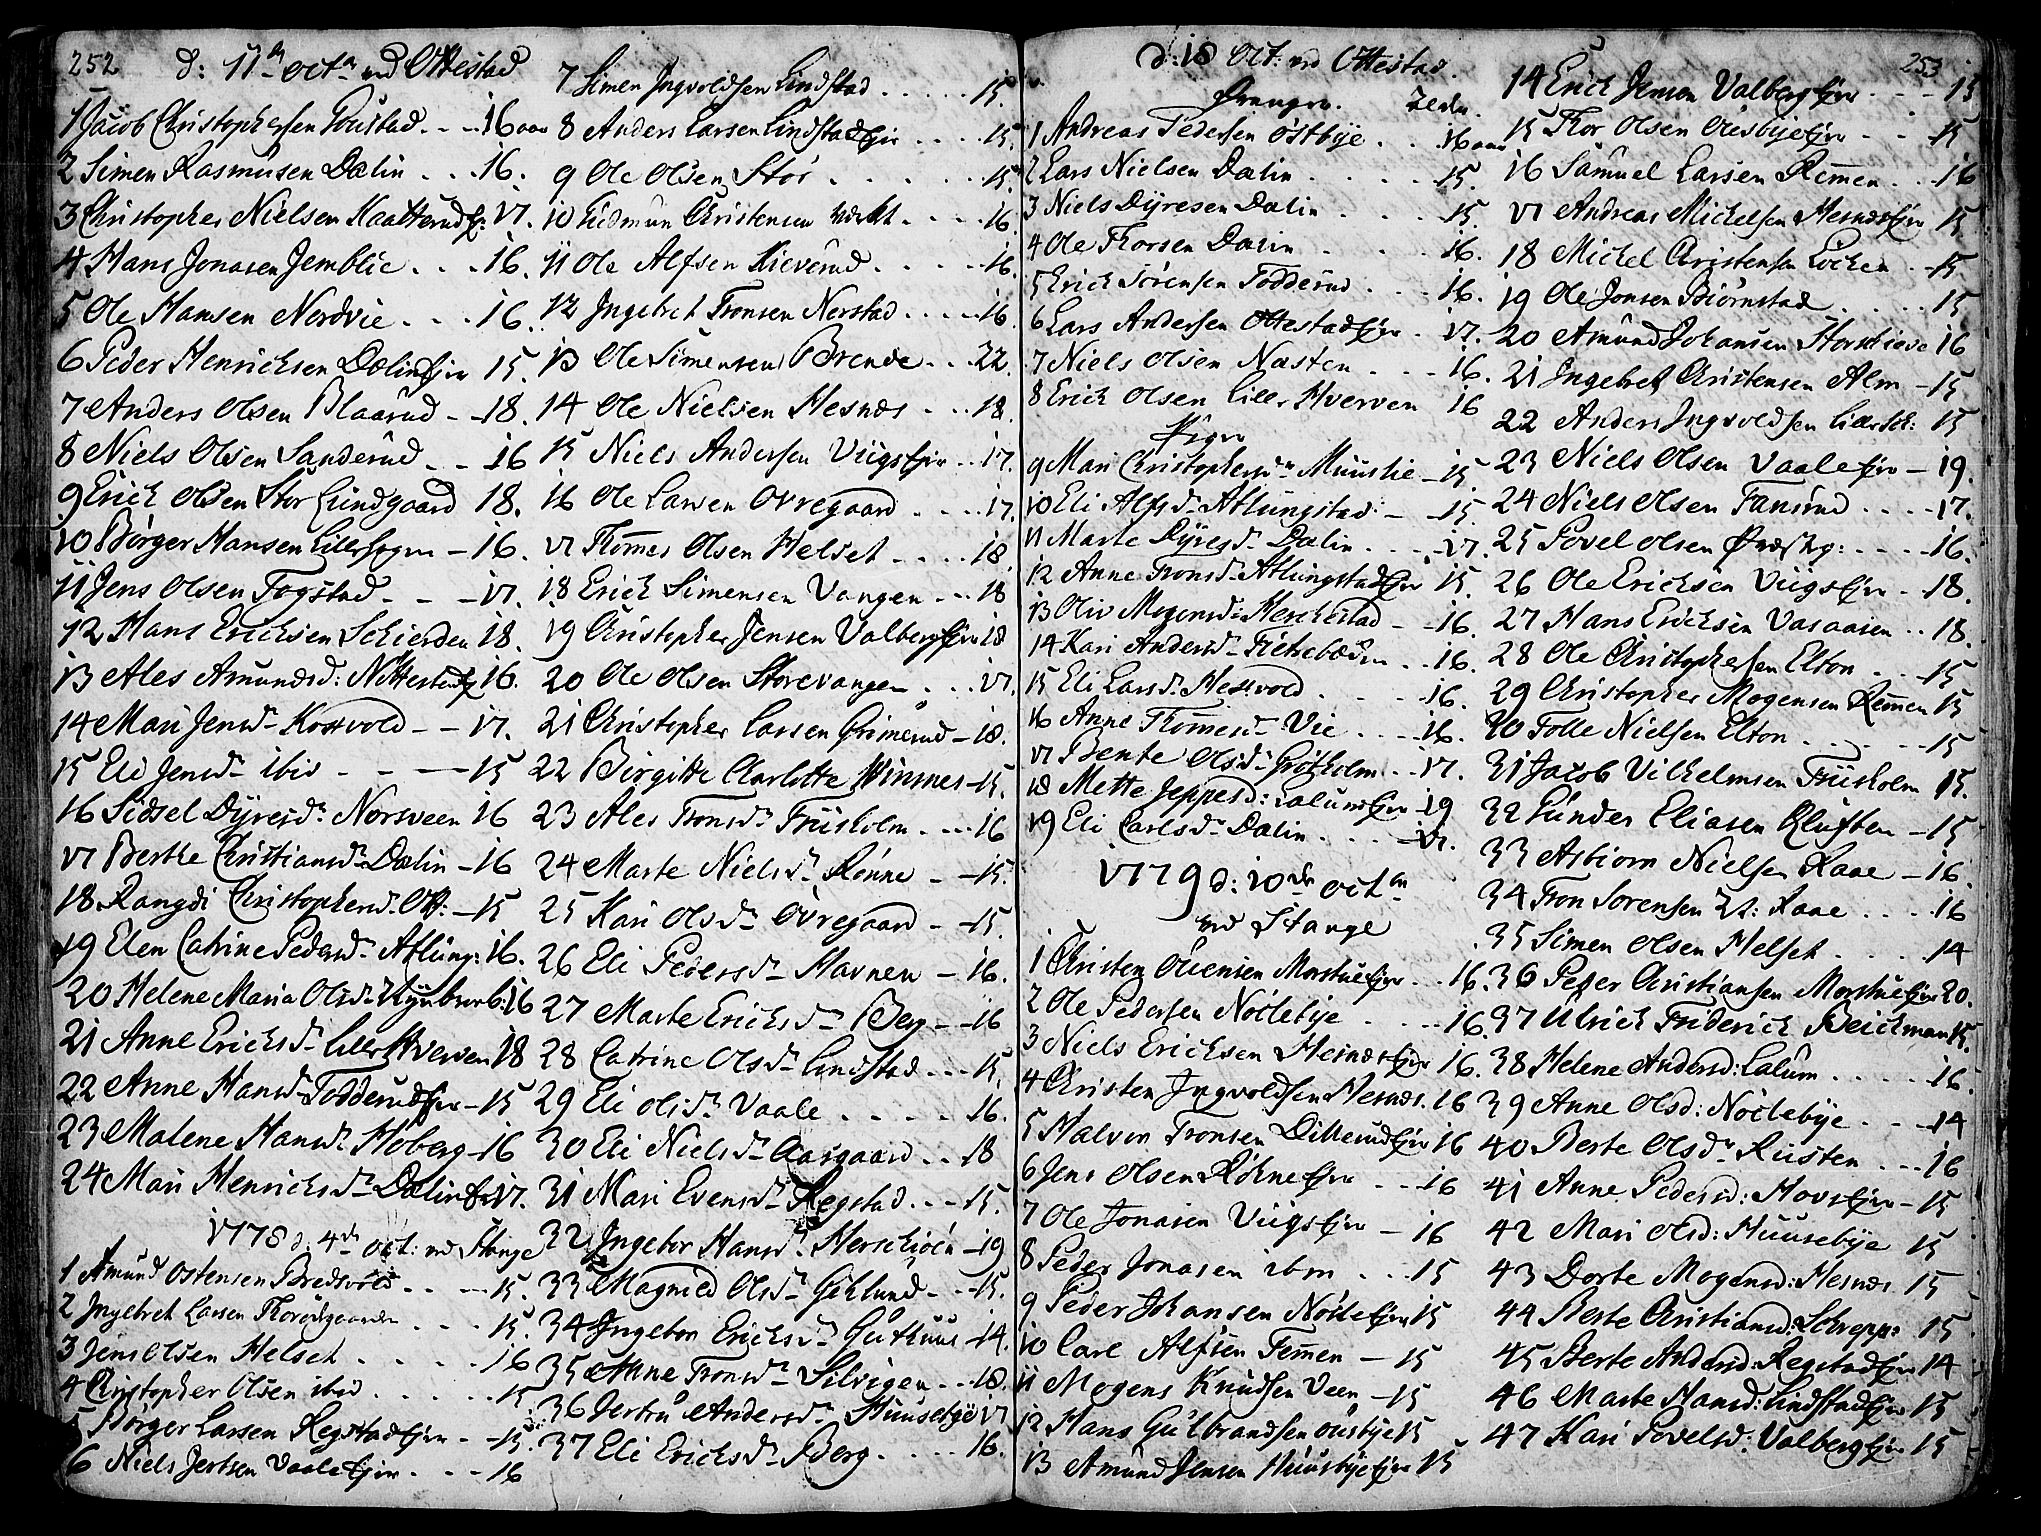 252
d: 11te octr ved Ottestad
1 Jacob Christophersen Toustad - - 16 aar
2 Simen Rasmusen Dælin . . . 16.
3 Christopher Nielsen Kaatterud Ejr: 17.
4 Hans Jonasen Jemblie . . . 16.
5 Ole Hansen Nordvie . . . 16.
6 Peder Henrichsen Dælin Ejer 15.
7 Anders Olsen Blaarud - - 18.
8 Niels Olsen Sanderud - - 16
9 Erich Olsen Stor Lundgaard 18.
10 Børger Hansen Lille - 16.
11 Jens Olsen Fogstad - - - 17.
12 Hans Erichsen Schierden 18.
13 Ales Amundsd: 16.
14 Mari Jensdr Korsvold - - 17.
15 Eli Jensdr ibid - - - 15
16 Sidsel Dyresdr Norsveen 16
17 Berthe Christiansdr Dælin - 16
18 Rangdi Christophersd: Ott: - 15
19 Elen Catrine Pedersdr Atlung: 16.
20 Helene Maria Olsdr 16
21 Anne Erichsdr Lille Hverven 18
22 Anne Hansdr Fodderud Ejer - 15
23 Malene Hansdr Hoberg - 16
24 Mari Henrichsdr Dælin Ejr 17.
1778 d: 4de oct: ved Stange
1 Amund Ostensen Bredsvold . . - - 15.
2 Ingebret Larsen Thorudgaarden . . . 15.
3 Jens Olsen Helset . . . . 16
4 Christopher Olsen ibid . . . . . 15
5 Børger Larsen Regstad Ejer - - 15.
6 Niels Jertsen Vaale Ejer . . . 16
7 Simen Ingvoldsen Lindstad . . . . . 15.
8 Anders Larsen Lindstad Ejr . . . . 15.
9 Ole Olsen Stor . . . . . . 15.
10 Gudmun Christensen . . . . 16.
11 Ole Alfsen Kieverud . . . . . 16.
12 Ingebret Tronsen Nerstad . . . . . 16.
13 Ole Simensen Brende . . . 22.
14 Ole Nielsen Hesnes . . . . 18.
15 Niels Andersen Viigs Ejer . . 17.
16 Ole Larsen Ovregaard . . . . 17.
17 Thommes Olsen Helset . . . . 18.
18 Erich Simensen Vangen . . . 18
19 Christopher Jensen Valberg Ejer 18
20 Ole Olsen Storevangen . . . . 17.
21 Christopher Larsen Grimerud - 18.
22 Birgitte Charlotte Winsnes - 15.
23 Ales Tronsdr Friisholm . . . . 16
24 Marte Nielsdr Rønne - - 15.
25 Kari Olsdr Ovregaard - - 15.
26 Eli Pedersdr Stavnen - 16.
27 Marte Erichsdr Berg - - 16
28 Catrine Olsdr Lindstad . . . 15.
29 Eli Olsdr Vaale . . . . . 16.
30 Eli Nielsdr Aasgaard . . . 18
31 Mari Evensdr Regstad . . . 15.
32 Ingebor Hansdr - 19
33 Magnild Olsdr - - 15.
34 Ingebor Erichsdr Guthuus - 14.
35 Anne Tronsdr Silvigen . . . 18.
36 Jertru Andersdr Huusebye 17
37 Eli Erichsdr Berg . . . . . 16.
253
d: 18 Oct: ved Ottestad.
Drenge.
1 Andreas Pedersen Østbye . . 16 aar
2 Lars Nielsen Dælin . . . . 15.
3 Niels Dyresen Dælin . . . . 15.
4 Ole Thorsen Dælin . . . . 16.
5 Erich Sørensen Fodderud . . . 16.
6 Lars Andersen Ottestad Ejer . 17.
7 Niels Olsen Næsten . . . - 16.
8 Erich Olsen Lille Hverven 16
Piger
9 Mari Christophersdr Muuslie - 15.
10 Eli Alfsdr Atlungstad - - 15.
11 Marte Dyresdr Dælin . . . . 17.
12 Anne Tronsdr Atlungstad Ejer 15.
13 Oliv Mogensd: - - 16.
14 Kari Andersdr . . 16.
15 Eli Larsdr Hestvold . . . . 16.
16 Anne Thommesdr Vie . . . . 16.
17 Bente Olsdr Grøtholm . . . 17.
18 Mette Jeppesd: Lalum Ejer - 19
19 Eli Carlsdr Dælin . . . . 17.
1779 d: 10de octr
ved Stange
1 Christen Ovensen Morstue Ejer . . 16.
2 Ole Pedersen Nøclebye . . . . 16.
3 Niels Erichsen Hesnes Ejer 16.
4 Christen Ingvoldsen Hesnes. 16
5 Halvor Tronsen Dillerud Ejer 16
6 Jens Olsen Røhne Ejer - - 16
7 Ole Jonasen Viigs Ejer - 16
8 Peder Jonasen ibm . . . 15
9 Peder Johansen Nøcle Ejer 15
10 Carl Alfsen Femmen - 15
11 Mogens Knudsen Veen - 15
12 Hans Gulbrandsen Ousbye 15
13 Amund Jensen Huusbye Ejer 15
14 Erich Jensen Valberg Ejer - - - 15
15 Thor Olsen Ousbye Ejer - - 15
16 Samuel Larsen Remmen . . 16
17 Andreas Michelsen Hesnes Ejer 15
18 Michel Christensen Løcken . . 15
19 Ole Jonsen Biørnstad . . . . . 15
20 Amund Johansen 16
21 Ingebret Christensen Alm - 15
22 Anders Ingvoldsen 15
23 Niels Olsen Vaale Ejer - 19.
24 Niels Olsen Fansrud . . . . 17.
25 Povel Olsen . . . . 16.
26 Ole Erichsen Viigs Ejer . 18.
27 Hans Erichsen Vasaasen . . 18.
28 Ole Christophersen Elton . . . 15
29 Christopher Mogensen Remmen 15
30 Tolle Nielsen Elton . . . . 15
31 Jacob Vilhelmsen Friisholm 15.
32 Gunder Eliasen Kluften - 15
33 Asbiorn Nielsen Raae - 16.
34 Tron Sorensen Raae . . . 16
35 Simen Olsen Helset . . . . 14
36 Peder Christiansen Morstue Ejer 20.
37 Ulrich Friderich Beichman 15.
38 Helene Andersd: Lalum . . . . 16.
39 Anne Olsd: Nøclebye . . . 14
40 Berte Olsdr Rusten . . . 16
41 Anne Pedersd: Hovs Ejer - 15
42 Mari Olsd: Huusebye 15
43 Dorte Mogensd: Hesnes. 15
44 Berte Christiansd: Schrepp: 15
45 Berte Andersd: Regstad Ejer 14
46 Marte Hansd: Lindstad Ejer 15
47 Kari Povelsd: Valberg Ejer 15